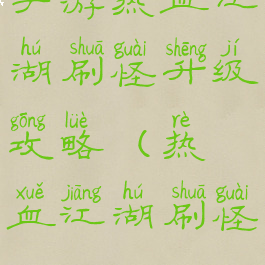 手游热血江
hú shuā guài shēng jí
湖刷怪升级
gōng lüè rè
攻略（热
xuě jiāng hú shuā guài
血江湖刷怪